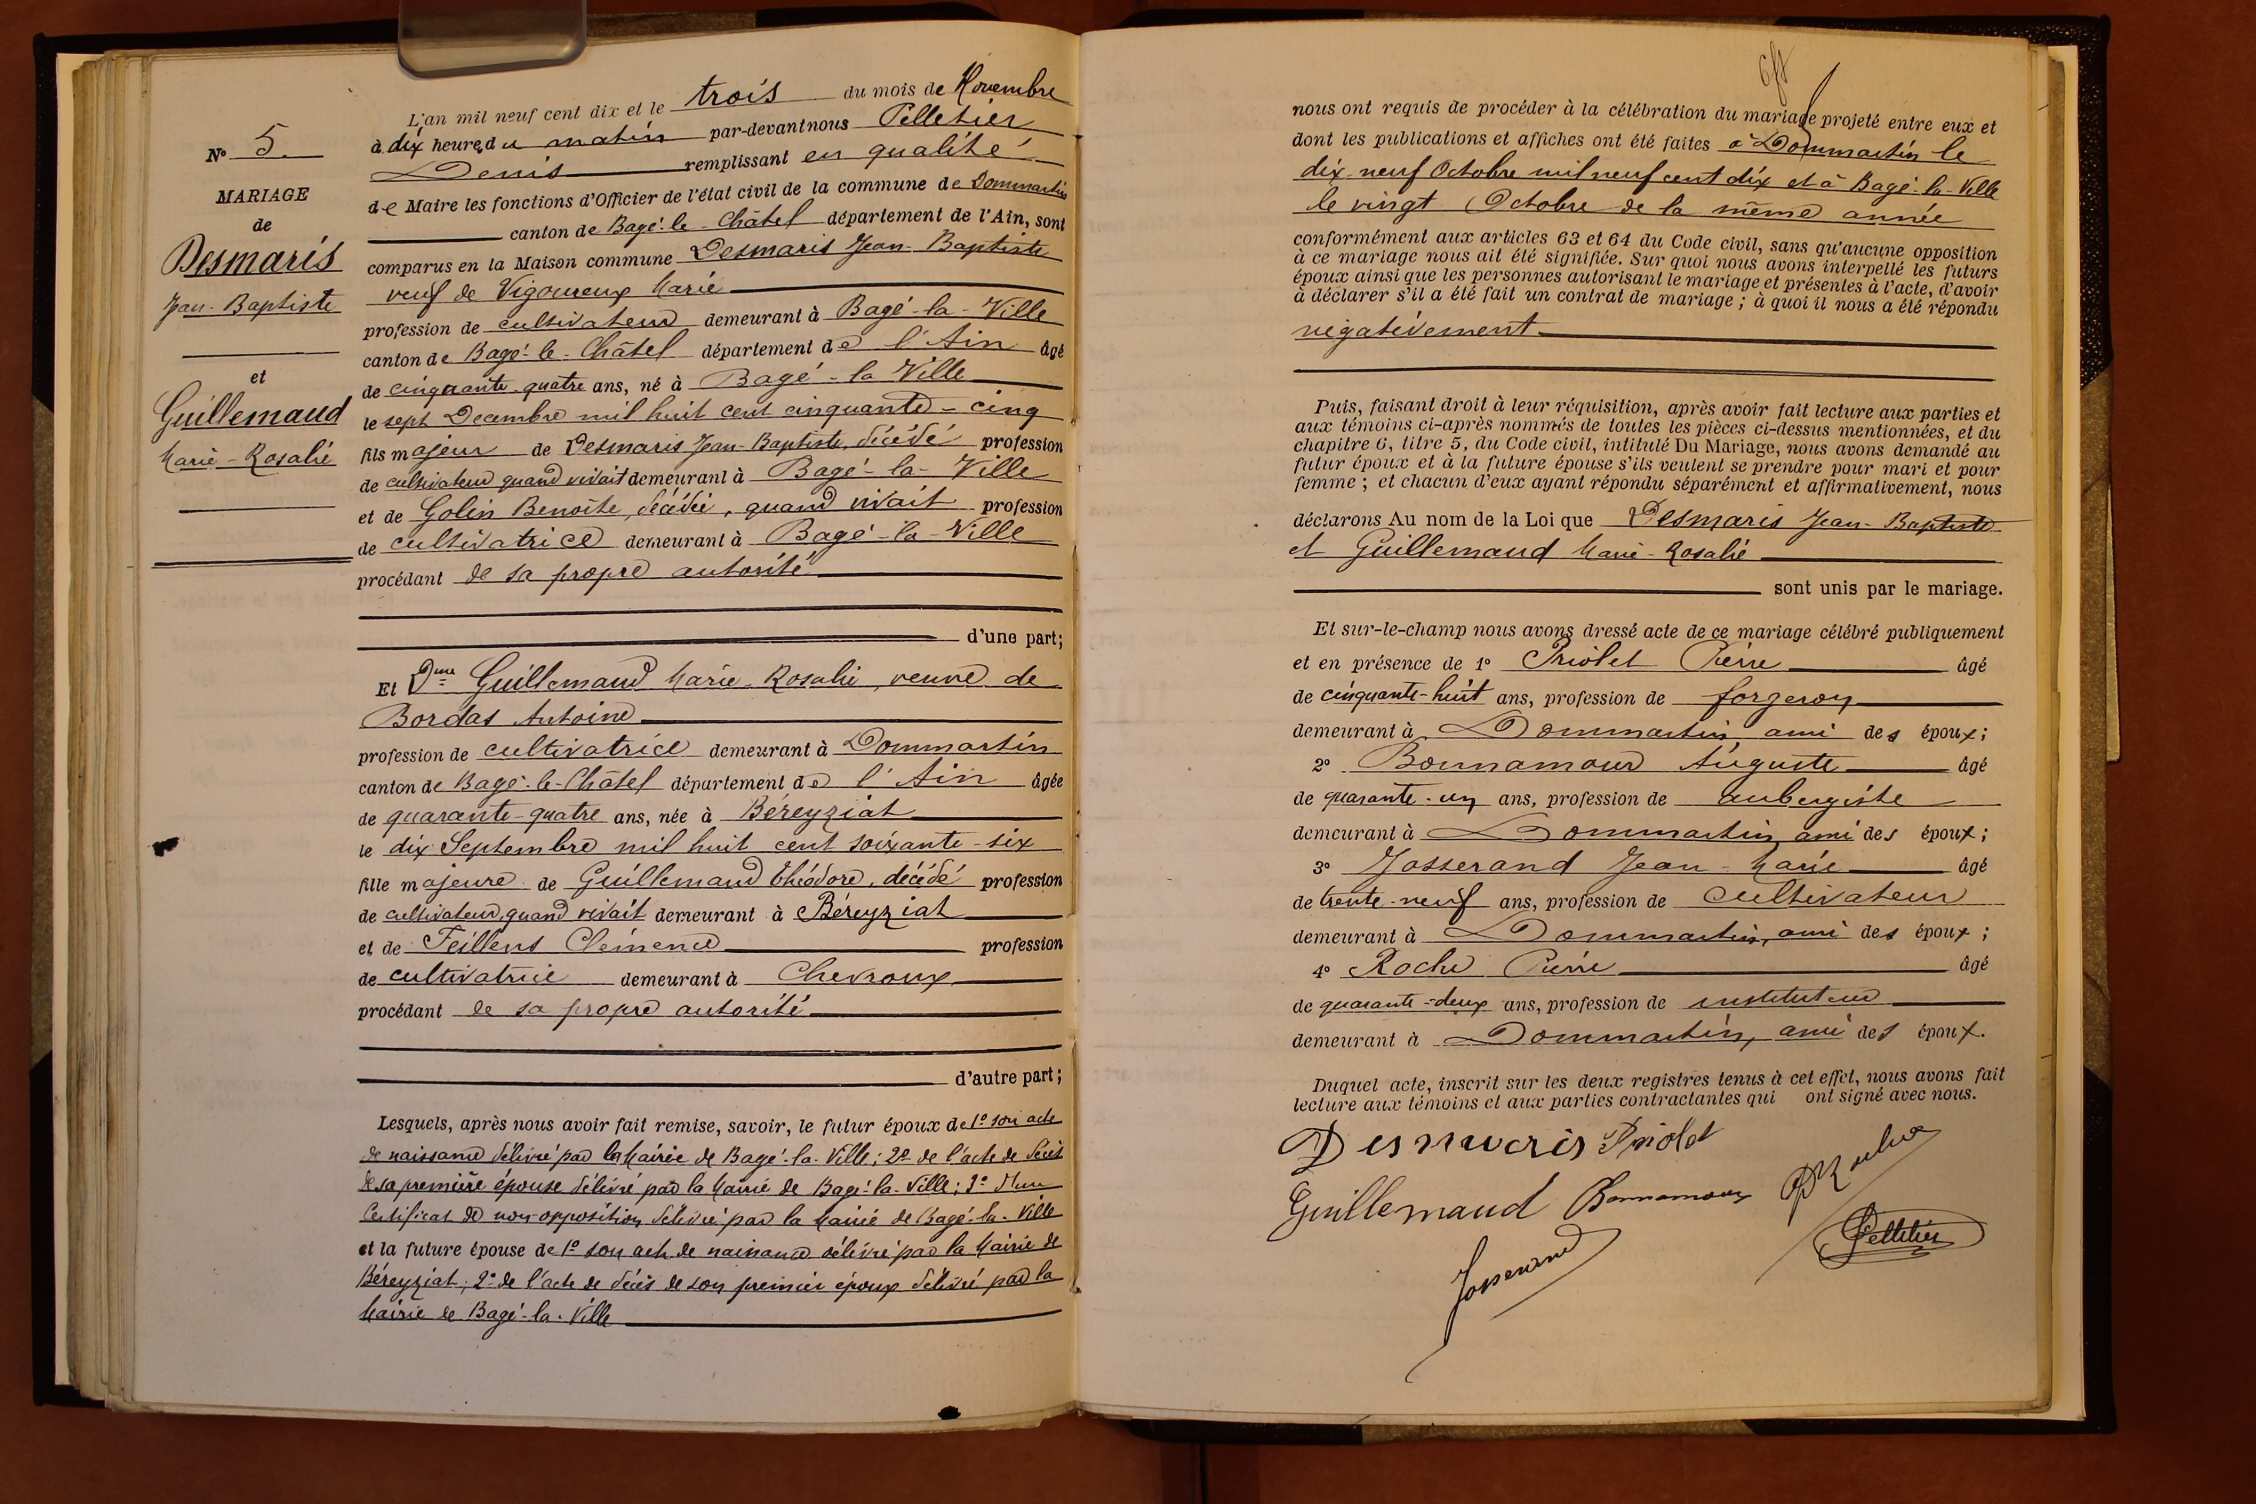 N° 5
MARIAGE
de
Desmaris
Jean-Baptiste
et
Guillemaud
Marie-Rosalie
L'an mil neuf cent dix et le trois du mois de Novembre
à dix heures du matin par-devant nous Pelletier
Denis remplissant en qualité
de Maire les fonctions d'Officier de l'état civil de la commune de Dommartin
canton de Bagé-le-Châtel département de l'Ain, sont
comparus en la Maison commune Desmaris Jean-Baptiste
veuf de Vigoureux Marie
profession de cultivateur demeurant à Bagé-la-Ville
canton de Bagé-le-Châtel département de l'Ain âgé
de cinquante-quatre ans, né à Bagé-la Ville
le sept Décembre mil huit cent cinquante-cinq
fils majeur de Desmaris Jean-Baptiste, décédé profession
de cultivateur quand vivait demeurant à Bagé-la-Ville
et de Golin Benoîte, décédée, quand vivait profession
de cultivatrice demeurant à Bagé-la-Ville
procédant de sa propre autorité
d'une part;
Et Dme Guillemaud Marie-Rosalie, veuve de
Bordas Antoine
profession de cultivatrice demeurant à Dommartin
canton de Bagé-le-Châtel département de l'Ain âgée
de quarante-quatre ans, née à Béreyziat
le dix Septembre mil huit cent soixante-six
fille majeure de Guillemaud Théodore, décédé profession
de cultivateur, quand vivait demeurant à Béreyziat
et de Feillens Clémence profession
de cultivatrice demeurant à Chevroux
procédant de sa propre autorité
d'autre part;
Lesquels, après nous avoir fait remise, savoir, le futur époux de 1° son acte
de naissance délivré par la Mairie de Bagé-la-Ville; 2° de l'acte de décès
de sa première épouse délivré par la Mairie de Bagé-la-Ville; 3° d'un
Certificat de non-opposition délivré par la Mairie de Bagé-la-Ville
et la future épouse de 1° son acte de naissance délivré par la Mairie de
Béreyziat; 2° de l'acte de décès de son premier époux délivré par la
Mairie de Bagé-la-Ville
nous ont requis de procéder à la célébration du mariage projeté entre eux et
dont les publications et affiches ont été faites à Dommartin le
dix-neuf Octobre mil neuf cent dix et à Bagé-la-Ville
le vingt Octobre de la même année
conformément aux articles 63 et 64 du Code civil, sans qu'aucune opposition
à ce mariage nous ait été signifiée. Sur quoi nous avons interpellé les futurs
époux ainsi que les personnes autorisant le mariage et présentes à l'acte, d'avoir
à déclarer s'il a été fait un contrat de mariage; à quoi il nous a été répondu
négativement
Puis, faisant droit à leur réquisition, après avoir fait lecture aux parties et
aux témoins ci-après nommés de toutes les pièces ci-dessus mentionnées, et du
chapitre 6, titre 5, du Code civil, intitulé Du Mariage, nous avons demandé au
futur époux et à la future épouse s'ils veulent se prendre pour mari et pour
femme; et chacun d'eux ayant répondu séparément et affirmativement, nous
déclarons Au nom de la Loi que Desmaris Jean-Baptiste
et Guillemaud Marie-Rosalie
sont unis par le mariage.
Et sur-le-champ nous avons dressé acte de ce mariage célébré publiquement
et en présence de 1° Priolet Pierre âgé
de cinquante-huit ans, profession de forgeron
demeurant à Dommartin ami des époux;
2° Bonnamour Auguste âgé
de quarante-un ans, profession de aubergiste
demeurant à Dommartin, ami des époux;
3° Josserand Jean-Marie âgé
de trente-neuf ans, profession de cultivateur
demeurant à Dommartin, ami des époux;
4° Roche Pierre âgé
de quarante-deux ans, profession de instituteur
demeurant à Dommartin, ami des époux.
Duquel acte, inscrit sur les deux registres tenus à cet effet, nous avons fait
lecture aux témoins et aux parties contractantes qui ont signé avec nous.
Desmaris Priolet
Guillemaud Bonnamour PRoche
Josserand Pelletier